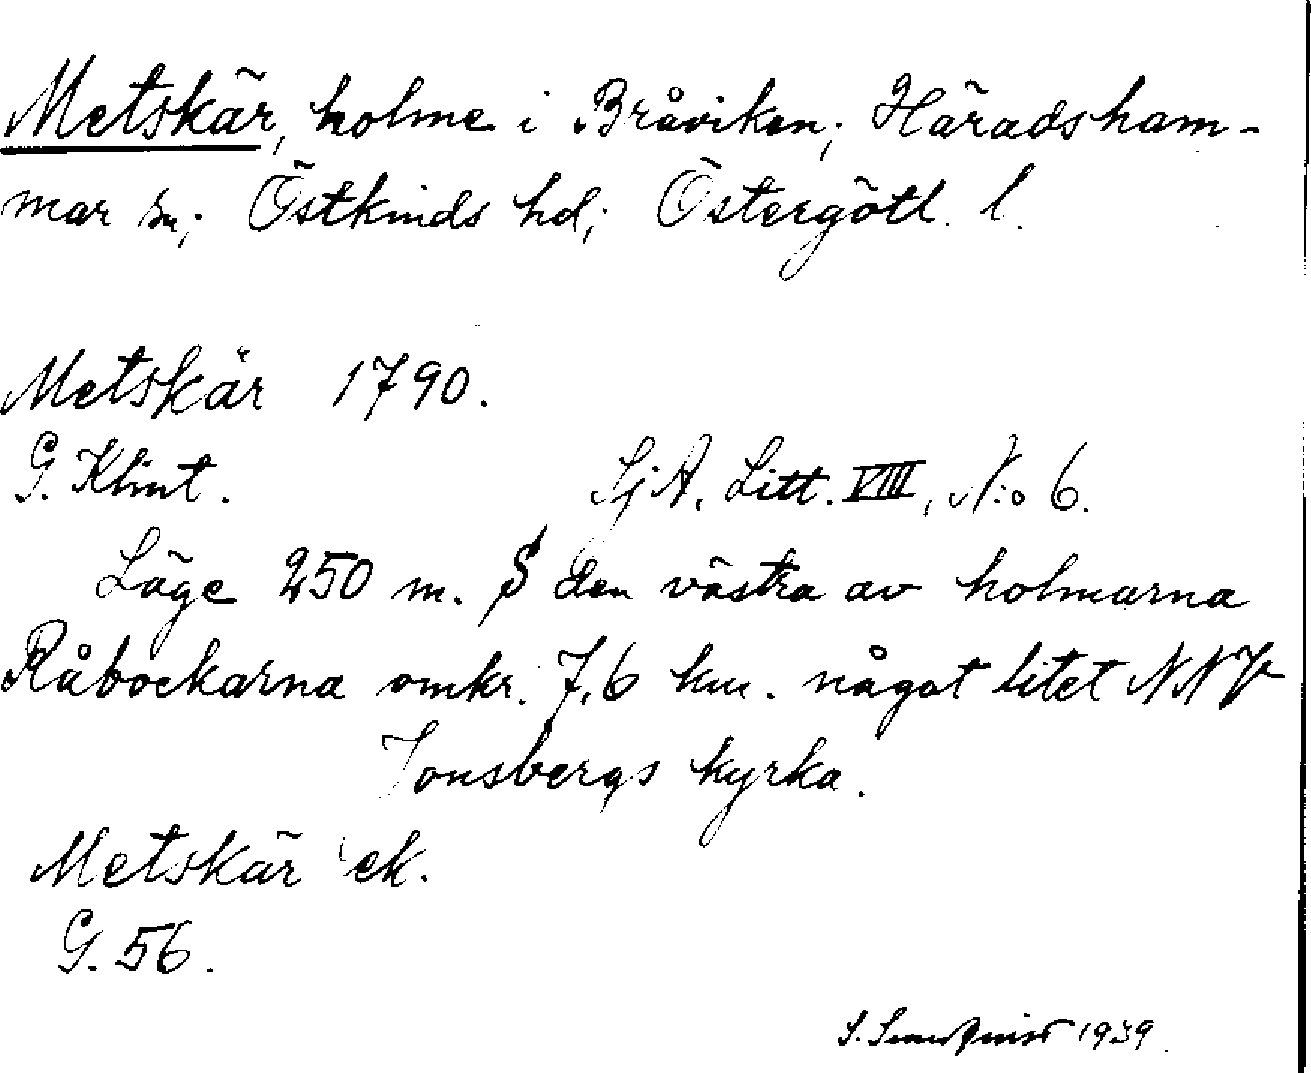 Metskär, holme i Bråviken; Häradsham-
mar sn; Östkinds hd; Östergötl. l.
Metskär 1790.
G. Klint. SjA. Litt. VIII, N:o 6.
Läge 250 m. S den västra av holmarna
Råbockarna omkr. 7,6 km. något litet NNV
Jonsbergs kyrka.
Metskär ek.
G. 56.
S. 1939